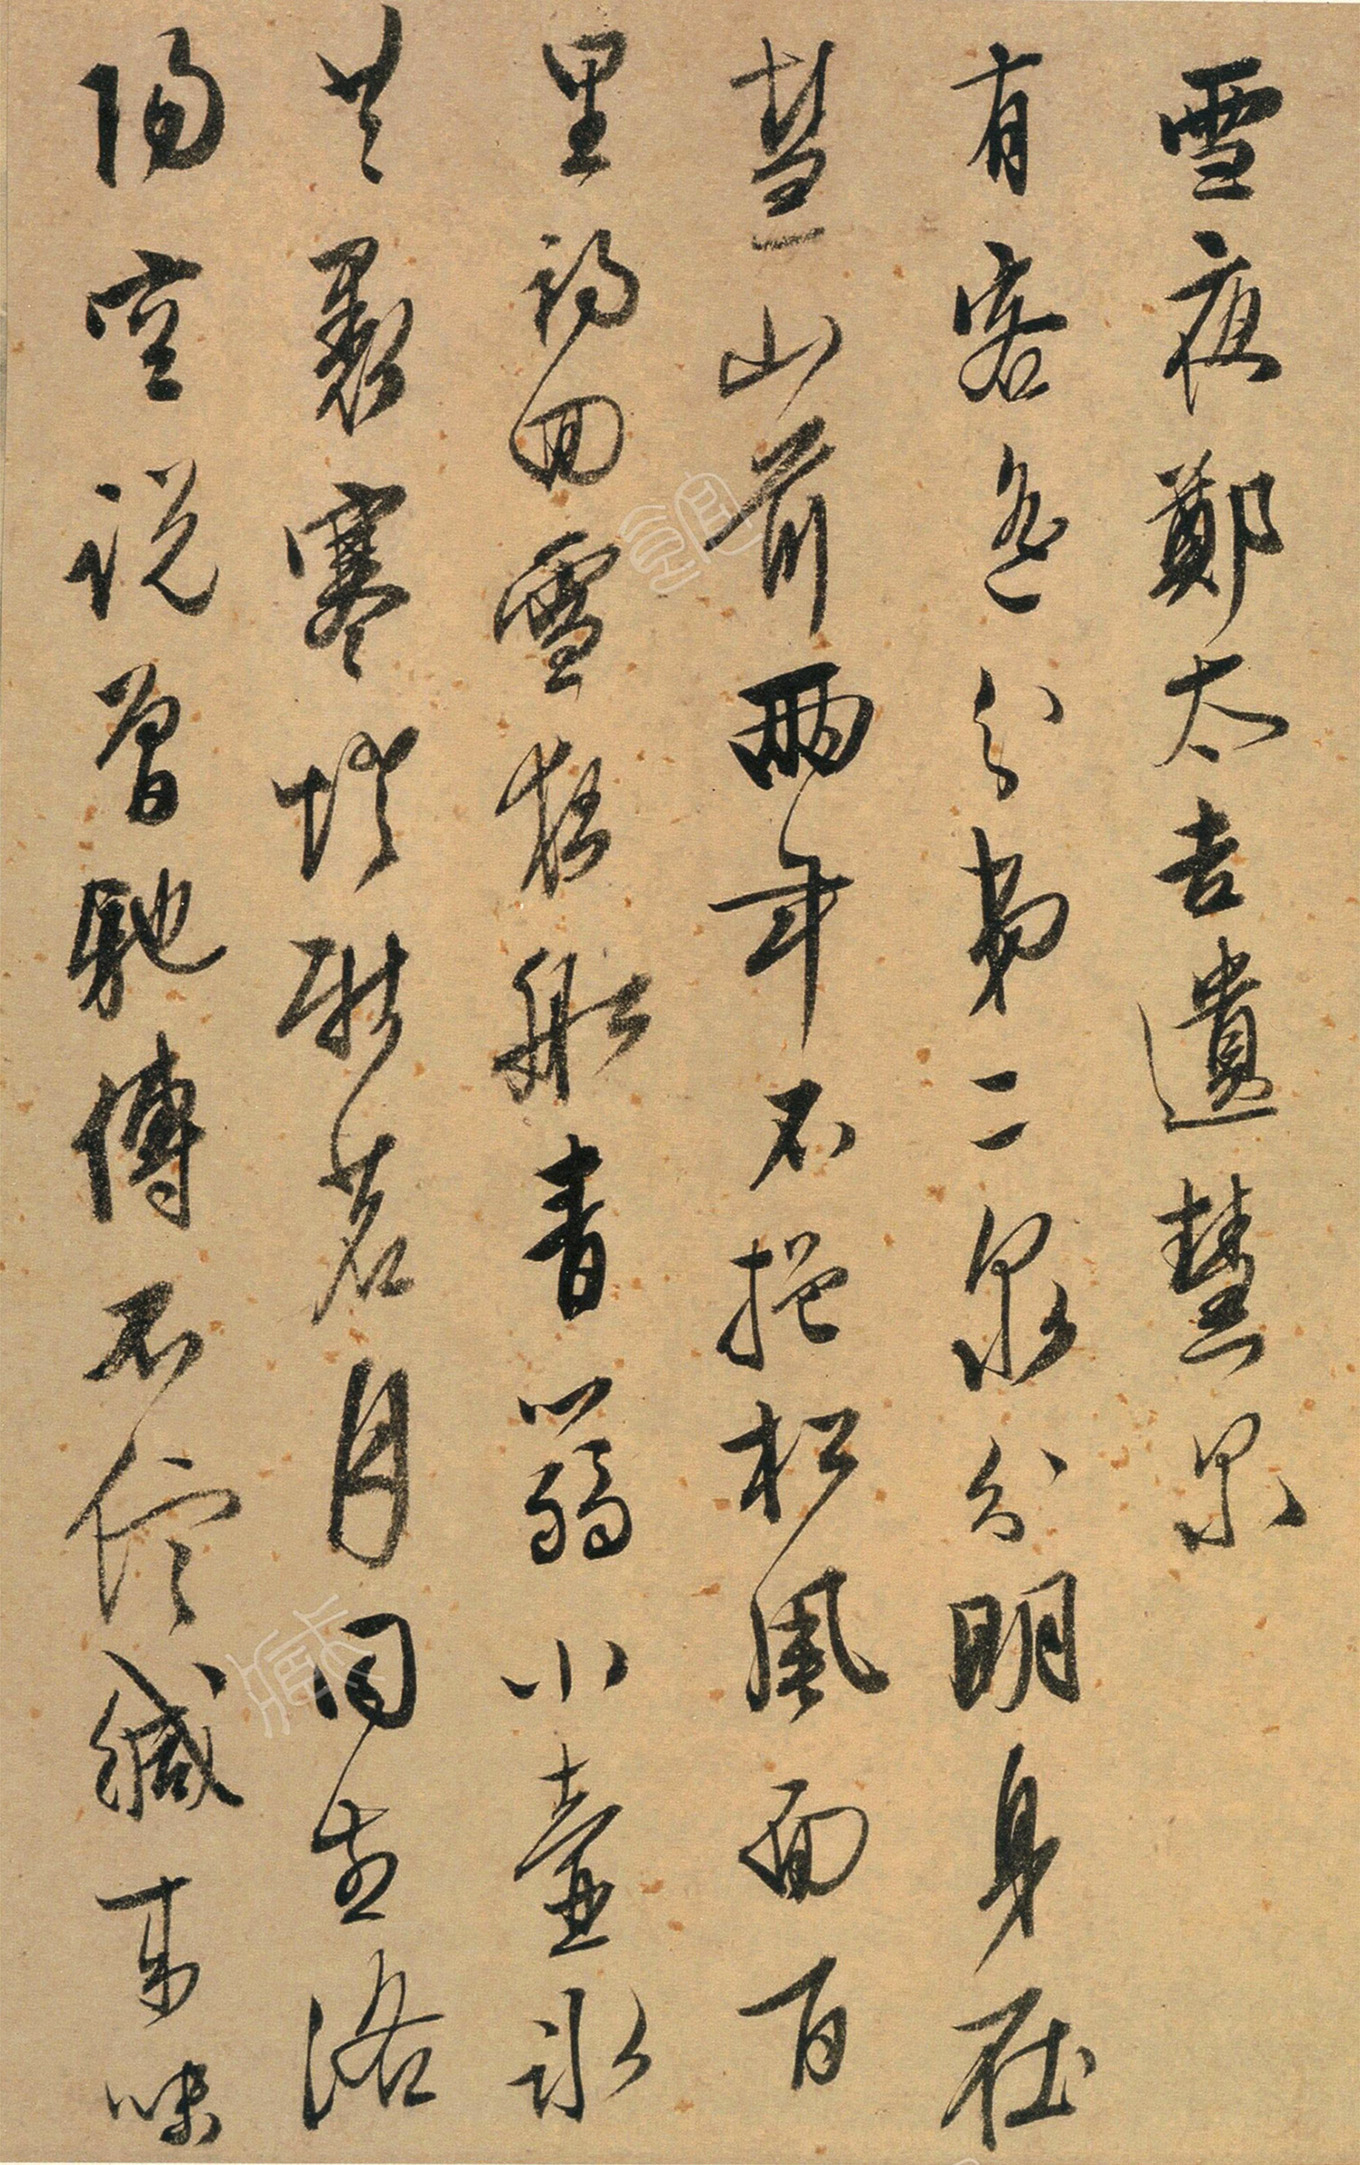 雪夜鄭太吉遺慧泉
有客遙分第二泉分明身在
慧山前兩年不挹松風面百
里初回雪夜船青篛小壺冰
共裹寒燈新茗月同煎洛
陽空說曾馳傳不信緘來味